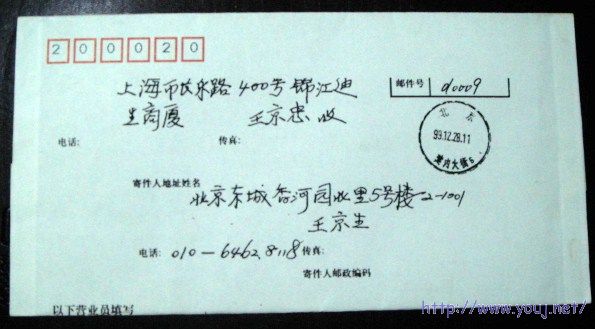 200020
上海市长乐路400号锦江迪
生商厦 王京忠收
邮件号 d0009
电话: 传真:
北京
99.12.28.11
寄件人地址姓名
北京东城香河园北里5号楼-2-1001
王京生
电话: 010-64628118 传真:
寄件人邮政编码
以下营业员填写
http://www.youj.net/